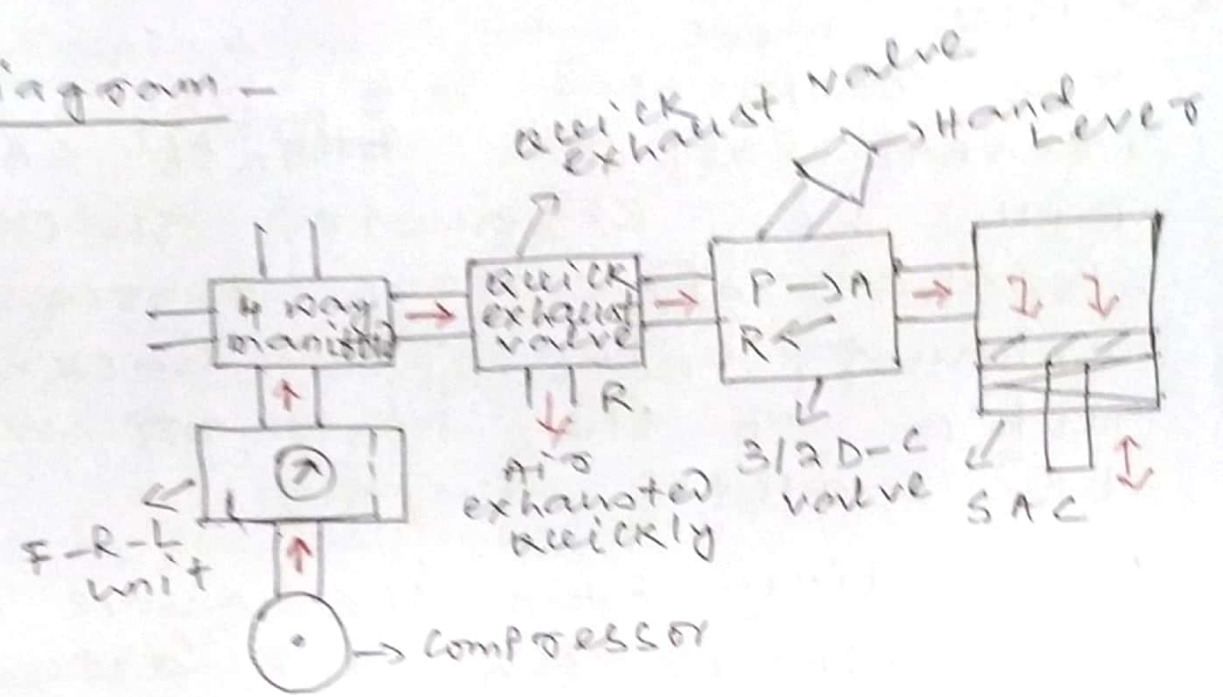 iagram -
Quick
exhaust valve
Hand
Lever
4 way
manifold
Quick
exhaust
valve
P → A
R
R
Air
exhausted
quickly
3/2 D-C
valve
SAC
F-R-L
unit
compressor